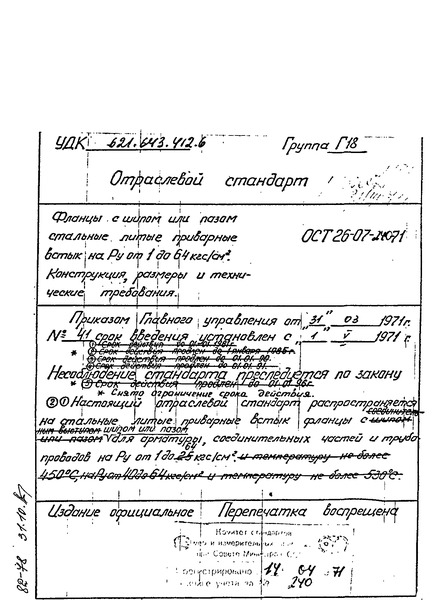 УДК 621.643.412.6 Группа Г18
Отраслевой стандарт
Фланцы с шипом или пазом
стальные литые приварные
встык на Ру от 1 до 64 кгс/см².
Конструкция, размеры и техни-
ческие требования.
ОСТ 26-07-240-71
Приказом Главного управления от "31" 03 1971г.
№ 41 срок введения установлен с "1" V 1971 г.
① Срок действия до 01.01.1981г.
* ② Срок действия продлен до 1 января 1985г.
Срок действия продлен до 01.01.90.
Срок действия продлен до 01.01.91.
Несоблюдение стандарта преследуется по закону
* ⑤ Срок действия продлен до 01.01.96г.
* Снято ограничение срока действия.
② ① Настоящий отраслевой стандарт распространяется
на стальные литые приварные встык фланцы с шипом
шипом или пазом
или пазом для арматуры, соединительных частей и трубо-
64
проводов на Ру от 1 до 25 кгс/см² и температуру не более
450°С, на Ру от 40 до 64 кгс/см² и температуру не более 530°С.
Издание официальное Перепечатка воспрещена
Комитет стандартов
мер и измерительных
при Совете Министров СССР
Зарегистрировано 14 04 71
учета за № 240
82-78 31.10.